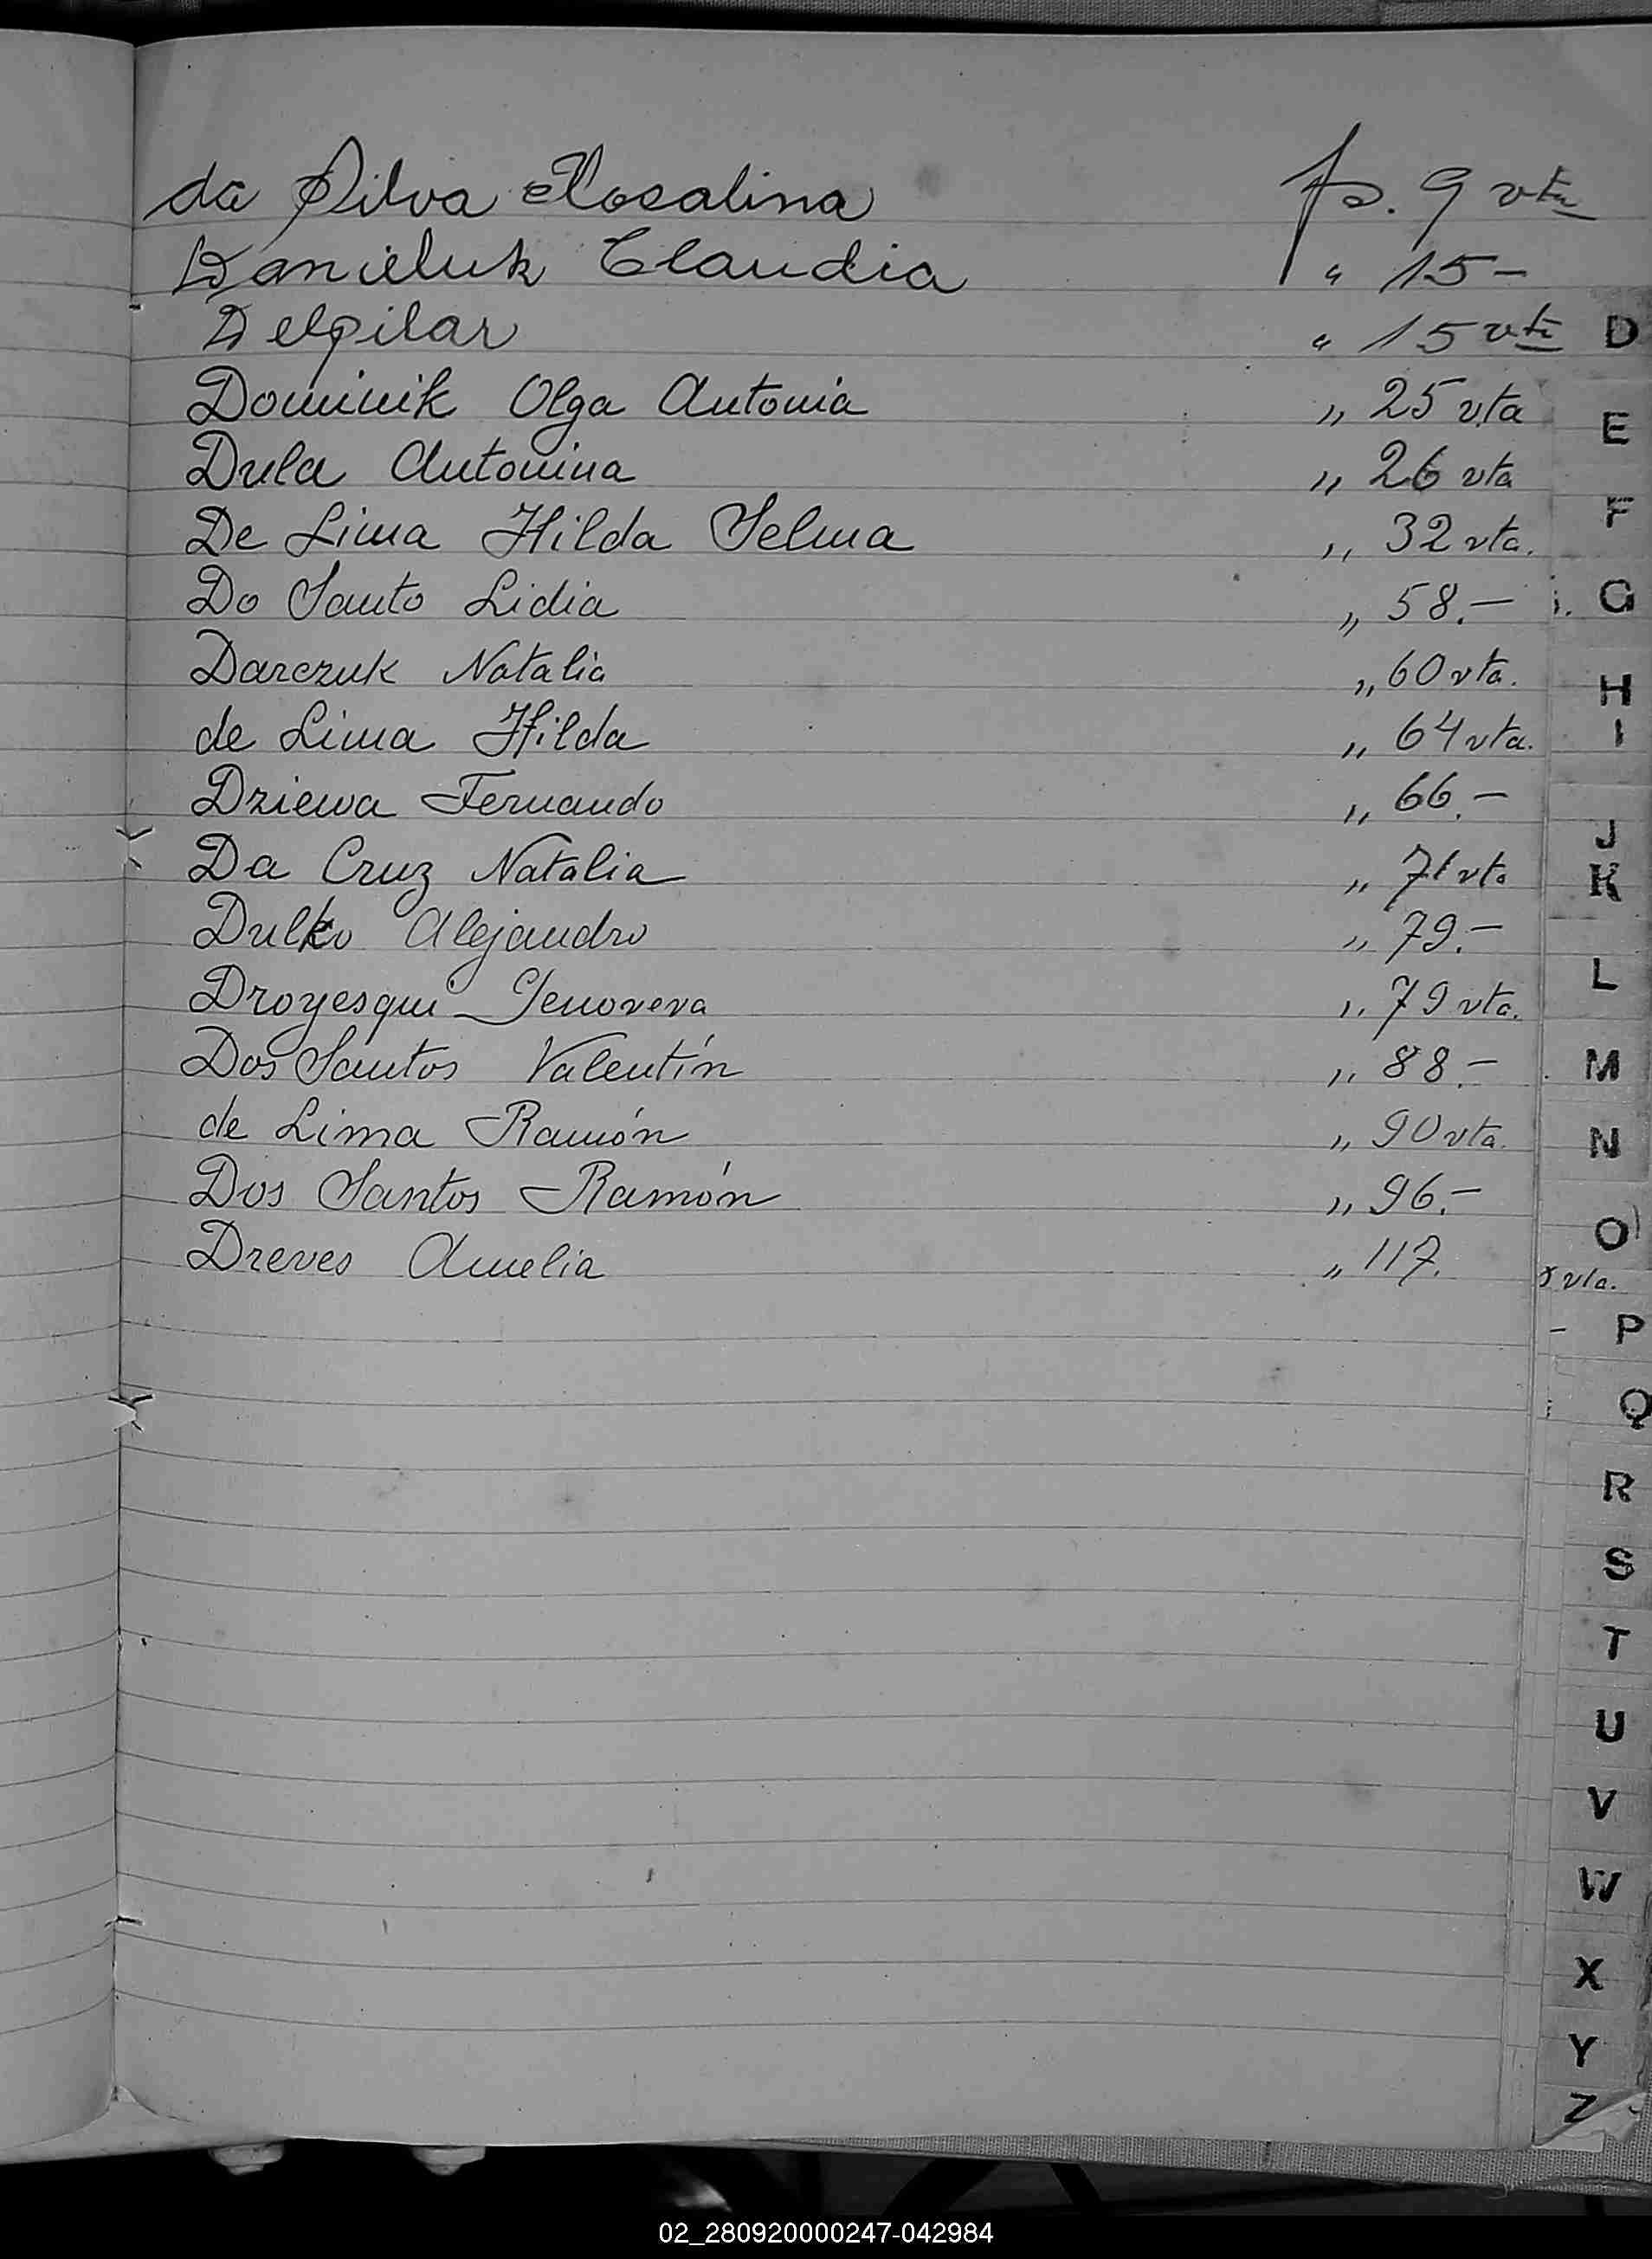 da Silva Rosalina fs. 9 vta
Danieluk Claudia " 15 –
Delpilar " 15 vta
Dominik Olga Antonia " 25 vta
Dula Antonina " 26 vta
De Lima Hilda Selma " 32 vta.
Do Santo Lidia " 58.–
Darczuk Natalia " 60 vta.
de Lima Hilda " 64 vta.
Dziewa Fernando " 66.–
Da Cruz Natalia " 71 vta
Dulko Alejandro " 79.–
Droyesqui Genoveva " 79 vta.
Dos Santos Valentín " 88.–
de Lima Ramón " 90 vta.
Dos Santos Ramón " 96.–
Dreves Amelia " 117.
vta.
D
E
F
G
H
I
J
K
L
M
N
O
P
Q
R
S
T
U
V
W
X
Y
Z
02_280920000247-042984